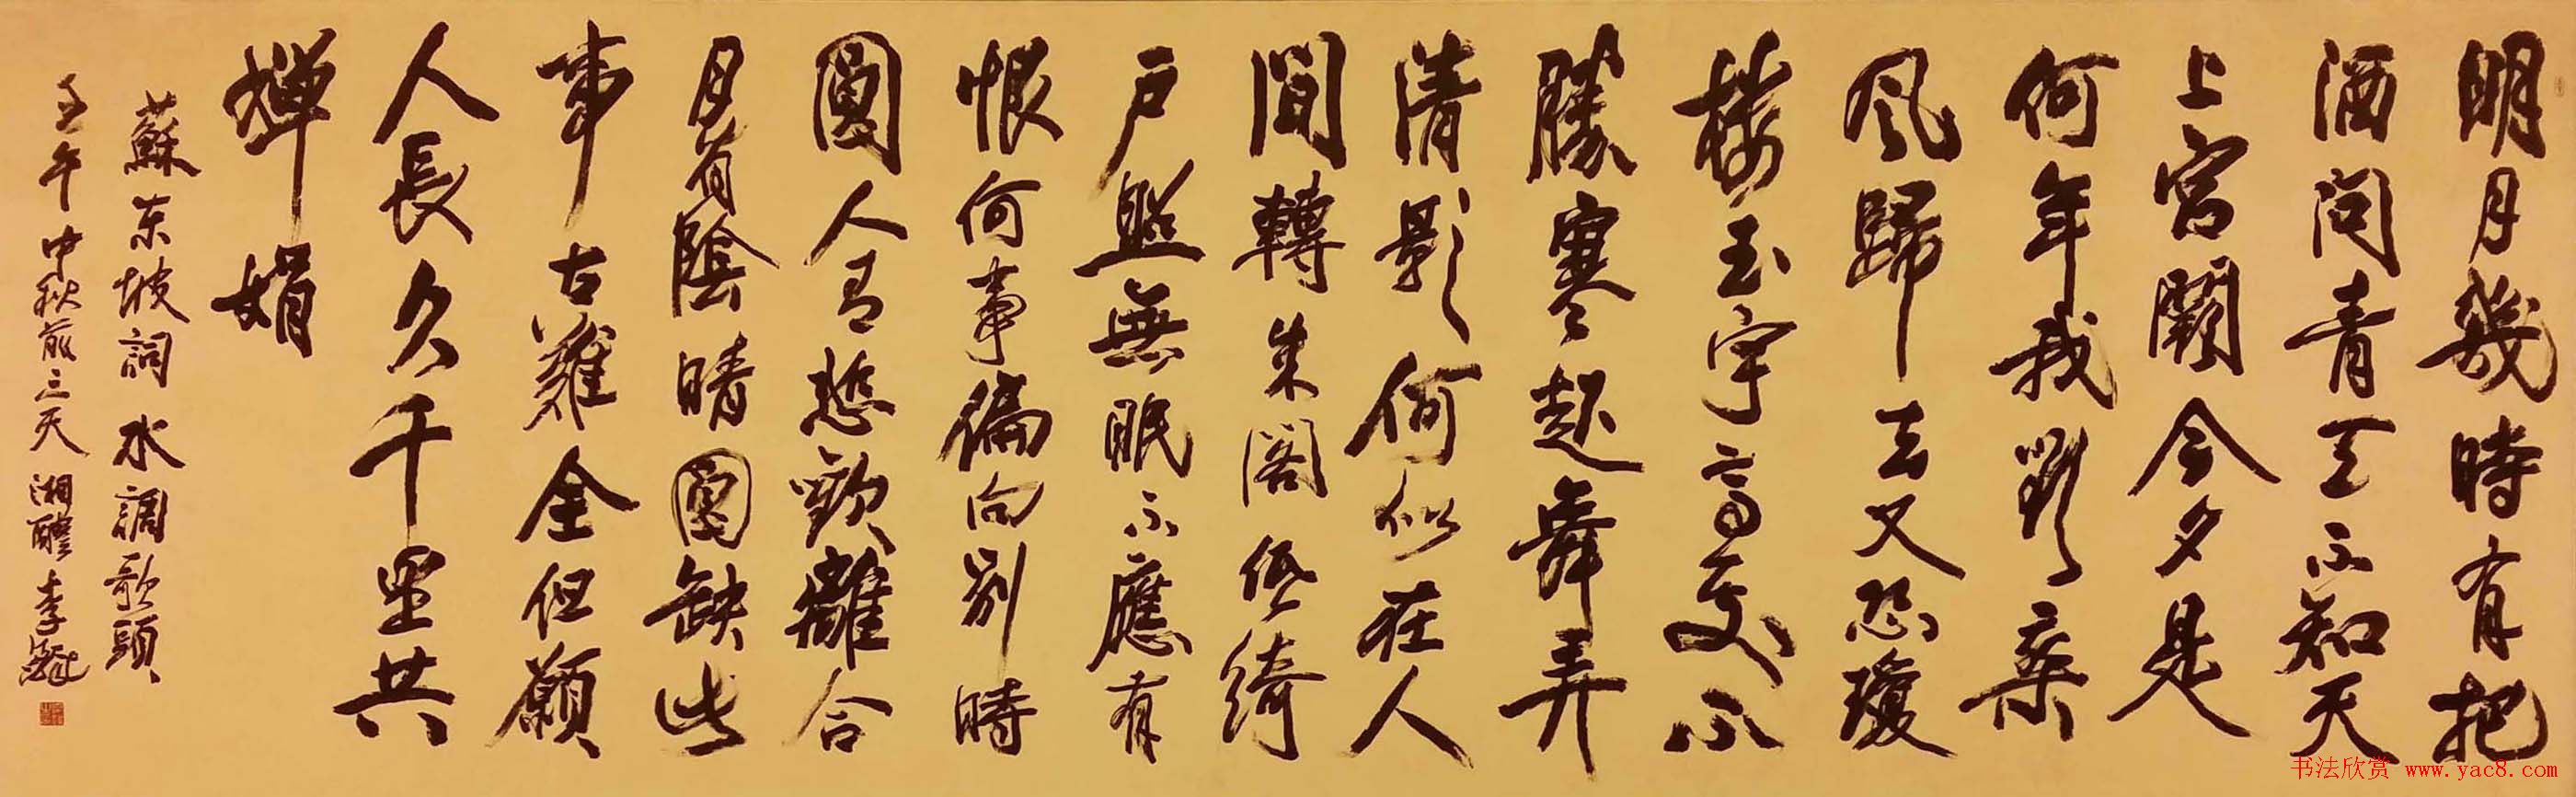 明月幾時有把
酒问青天不知天
上宫闕今夕是
何年我欲乘
风歸去又恐瓊
楼玉宇高處不
勝寒起舞弄
清影何似在人
間轉朱阁低绮
户照無眠不應有
恨何事偏向别時
圓人有悲歡離合
月有陰晴圓缺此
事古難全但願
人長久千里共
嬋娟
蘇东坡詞水調歌頭
壬午中秋前三天湘醴李
书法欣赏 www.yac8.com